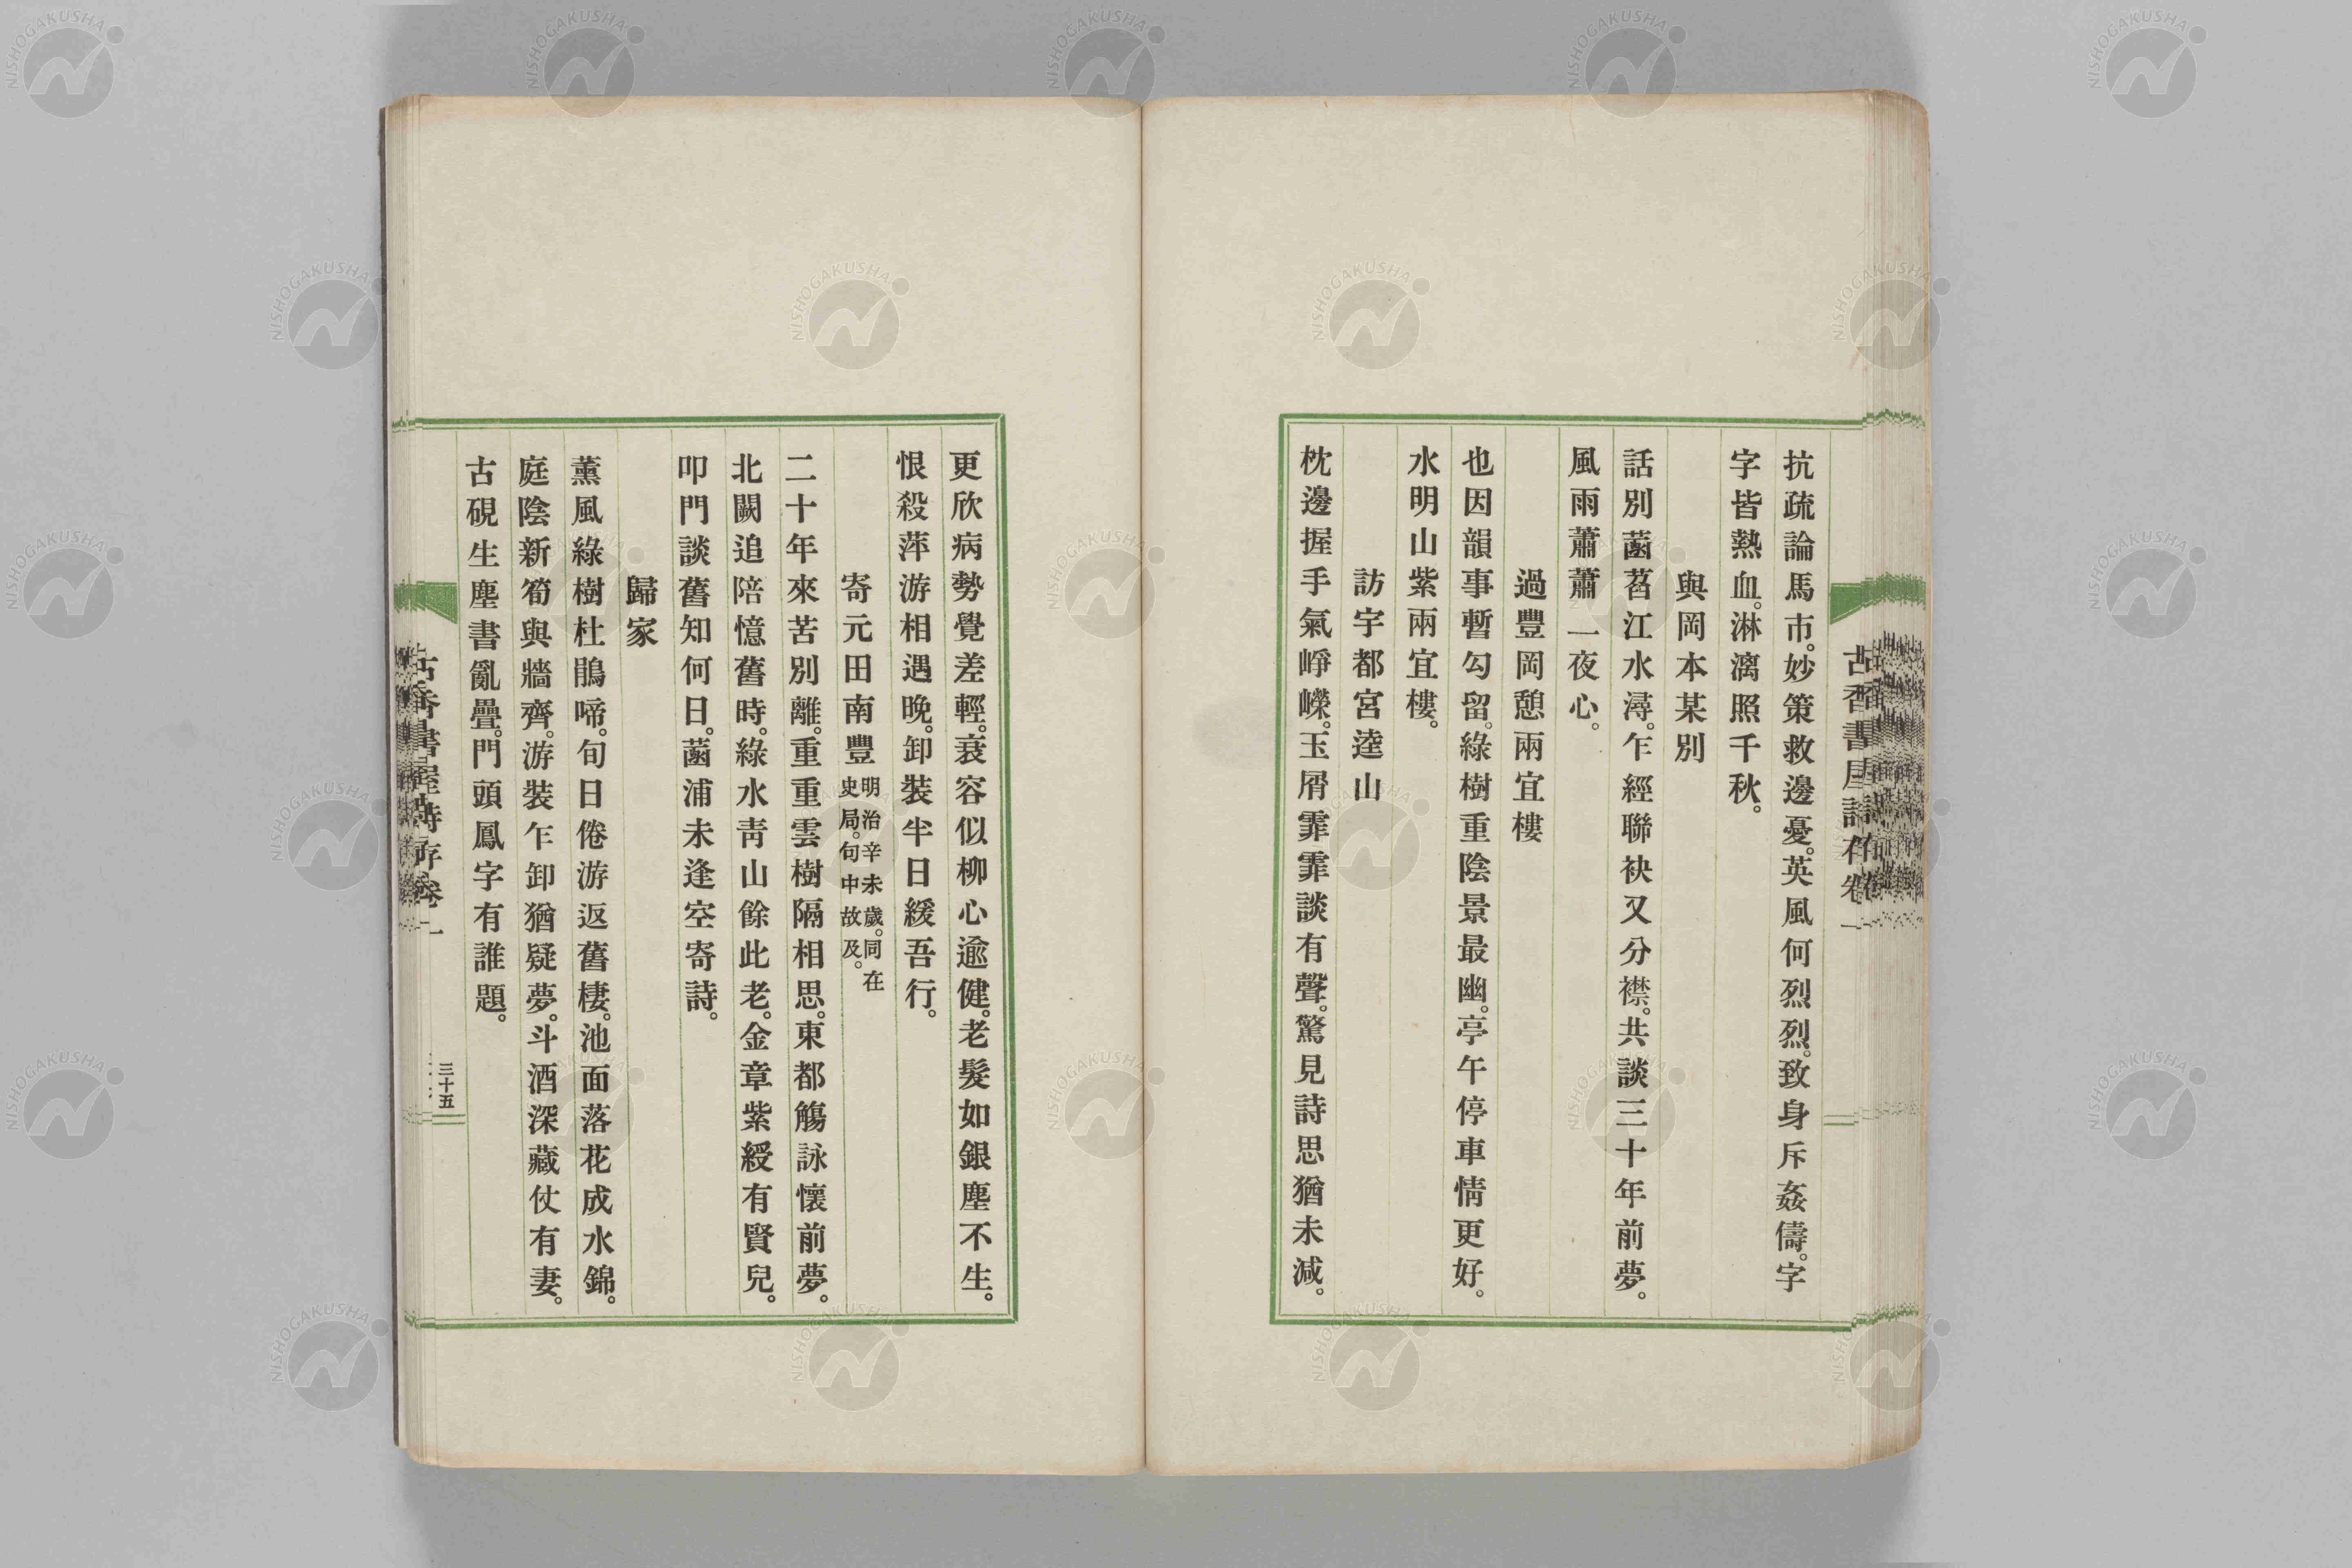 抗疏論馬市。妙策救邊憂。英風何烈烈。致身斥姦儔。字
字皆熱血。淋漓照千秋。
與岡本某別
話別菡萏江水潯。乍經聯袂又分襟。共談三十年前夢。
風雨蕭蕭一夜心。
過豐岡憩兩宜樓
也因韻事暫勾留。綠樹重陰景最幽。亭午停車情更好。
水明山紫兩宜樓。
訪宇都宮逵山
枕邊握手氣崢嶸。玉屑霏霏談有聲。驚見詩思猶未減。
古香書屋詩存卷一
更欣病勢覺差輕。衰容似柳心逾健。老髮如銀塵不生。
恨殺萍游相遇晚。卸裝半日緩吾行。
寄元田南豐
明治辛未歲。同在
史局。句中故及。
二十年來苦別離。重重雲樹隔相思。東都觴詠懷前夢。
北闕追陪憶舊時。綠水靑山餘此老。金章紫綬有賢兒。
叩門談舊知何日。菡浦未逢空寄詩。
歸家
薰風綠樹杜鵑啼。旬日倦游返舊棲。池面落花成水錦。
庭陰新筍與牆齊。游裝乍卸猶疑夢。斗酒深藏仗有妻。
古硯生塵書亂疊。門頭鳳字有誰題。
古香書屋詩存卷一
三十五
NISHOGAKUSHA